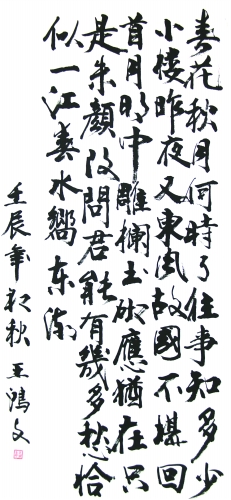 春花秋月何時了往事知多少
小樓昨夜又東風故國不堪回
首月明中雕欄玉砌應猶在只
是朱顏改問君能有幾多愁恰
似一江春水嚮东流
壬辰年初秋 王鴻文